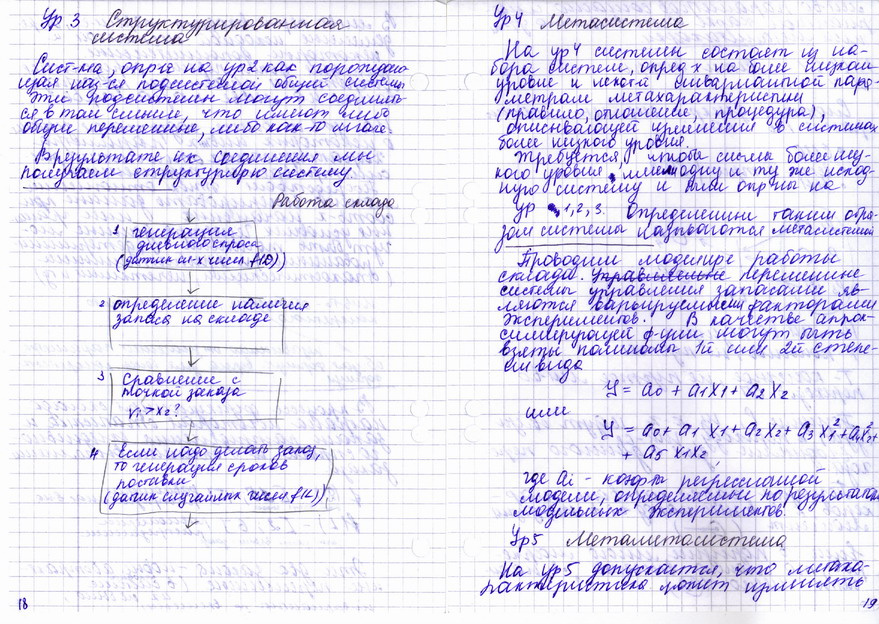 Ур 3 Структурированная
система
Сист-ма, опр-ая на ур2 как порождаю
щая наз-ся подсистемой общей системы
Эти подсистемы могут соединять
ся в том смысле, что имеют либо
общие переменные, либо как-то иначе.
В результате их соединения мы
получаем структурную систему.
Работа склада
1 генерация
дневного спроса
(датчик сл-х чисел f(D))
2 определение наличия
запаса на складе
3 Сравнение с
точкой заказа
y₁ > x₂?
4 Если надо делать заказ,
то генерация сроков
поставки
(датчик случайных чисел f(L))
18
Ур4 Метасистема
На ур4 системы состоят из на-
бора систем, опред-х на более низком
уровне и некот. инвариантной пара-
метрам метахарактеристики
(правило, отношение, процедура),
описывающей изменения в системах
более низкого уровня.
Требуется, чтобы сис-мы более низ-
кого уровня имели одну и ту же исход-
ную систему и были опр-ны на
ур 1, 2, 3. Определенные таким обра-
зом системы называются метасистемой
Проводим моделир-е работы
склада. Управляемые переменные
системы управления запасами яв-
ляются варьируемыми факторами
экспериментов. В качестве аппрок-
симирующей ф-ции могут быть
взяты полиномы 1й или 2й степе-
ни вида
Y = a₀ + a₁x₁ + a₂x₂
или
Y = a₀ + a₁x₁ + a₂x₂ + a₃x₁² + a₄x₂² +
+ a₅x₁x₂
где ai - коэф-ты регрессионной
модели, определенны по результатам
модельных экспериментов.
Ур5 Метаметасистема
На ур5 допускается, что метаха-
рактеристика может изменять
19